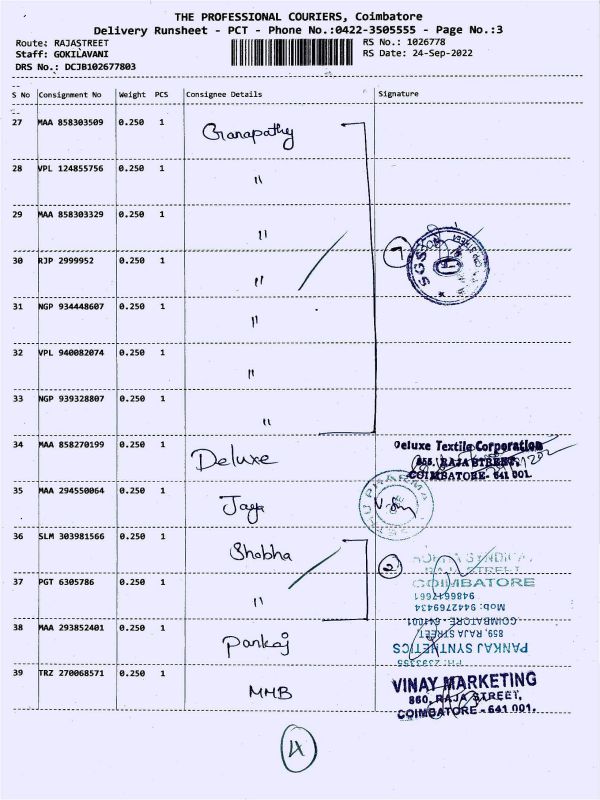 THE PROFESSIONAL COURIERS, Coimbatore
Delivery Runsheet - PCT - Phone No.:0422-3505555 - Page No.:3
Route: RAJASTREET RS No.: 1026778
Staff: GOKILAVANI RS Date: 24-Sep-2022
DRS No.: DCJB102677803
S No Consignment No Weight PCS Consignee Details Signature
27 MAA 858303509 0.250 1 Ganapathy
28 VPL 124855756 0.250 1 "
29 MAA 858303329 0.250 1 "
30 RJP 2999952 0.250 1 " 7
31 NGP 934448607 0.250 1 "
32 VPL 940082074 0.250 1 "
33 NGP 939328807 0.250 1 "
34 MAA 858270199 0.250 1 Deluxe
Deluxe Textile Corporation
855, RAJA STREET,
COIMBATORE - 641 001.
35 MAA 294550064 0.250 1 Jaya
PHARMA
36 SLM 303981566 0.250 1 Shobha 2
RAJA STREET
COIMBATORE
9486617661
37 PGT 6305786 0.250 1 "
Mob: 9442769434
COIMBATORE - 641001
859, RAJA STREET,
PANKAJ SYNTHETICS
38 MAA 293852401 0.250 1 Pankaj
39 TRZ 270068571 0.250 1 MMB
VINAY MARKETING
860, RAJA STREET,
COIMBATORE - 641 001.